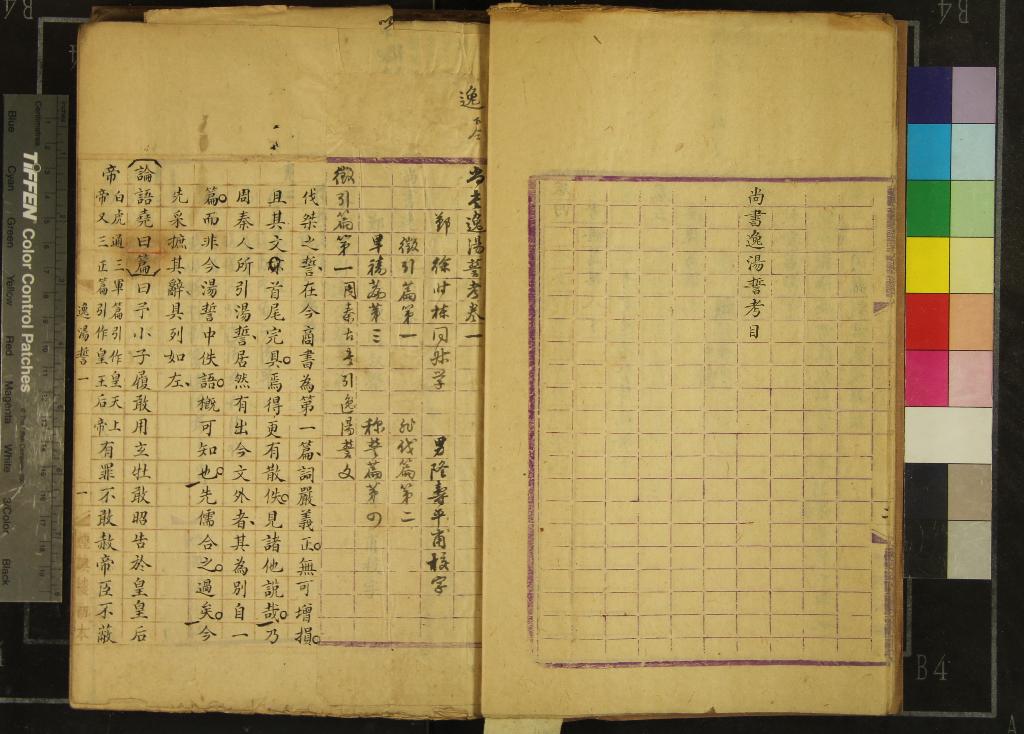 尚書逸湯誓考目
尚書逸湯誓考卷一
鄞 徐時棟同叔學 男隆壽平甫校字
徵引篇第一 非伐篇第二
旱禱篇第三 稱誓篇第四
徵引篇第一 周秦古書引逸湯誓文
伐桀之誓在今商書為第一篇詞嚴義正無可增損
且其文亦首尾完具焉得更有散佚見諸他說哉乃
周秦人所引湯誓居然有出今文外者其為別自一
篇而非今湯誓中佚語概可知也先儒合之過矣今
先采摭其辭具列如左
論語堯曰篇曰予小子履敢用玄牡敢昭告於皇皇后
帝白虎通三軍篇引作皇天上帝又三正篇引作皇王后帝有罪不敢赦帝臣不蔽
逸湯誓一
一
逸
TIFFEN Color Control Patches
Centimetres
Inches
Blue
Cyan
Green
Yellow
Red
Magenta
White
3/Color
Black
B4
B4
B4
A